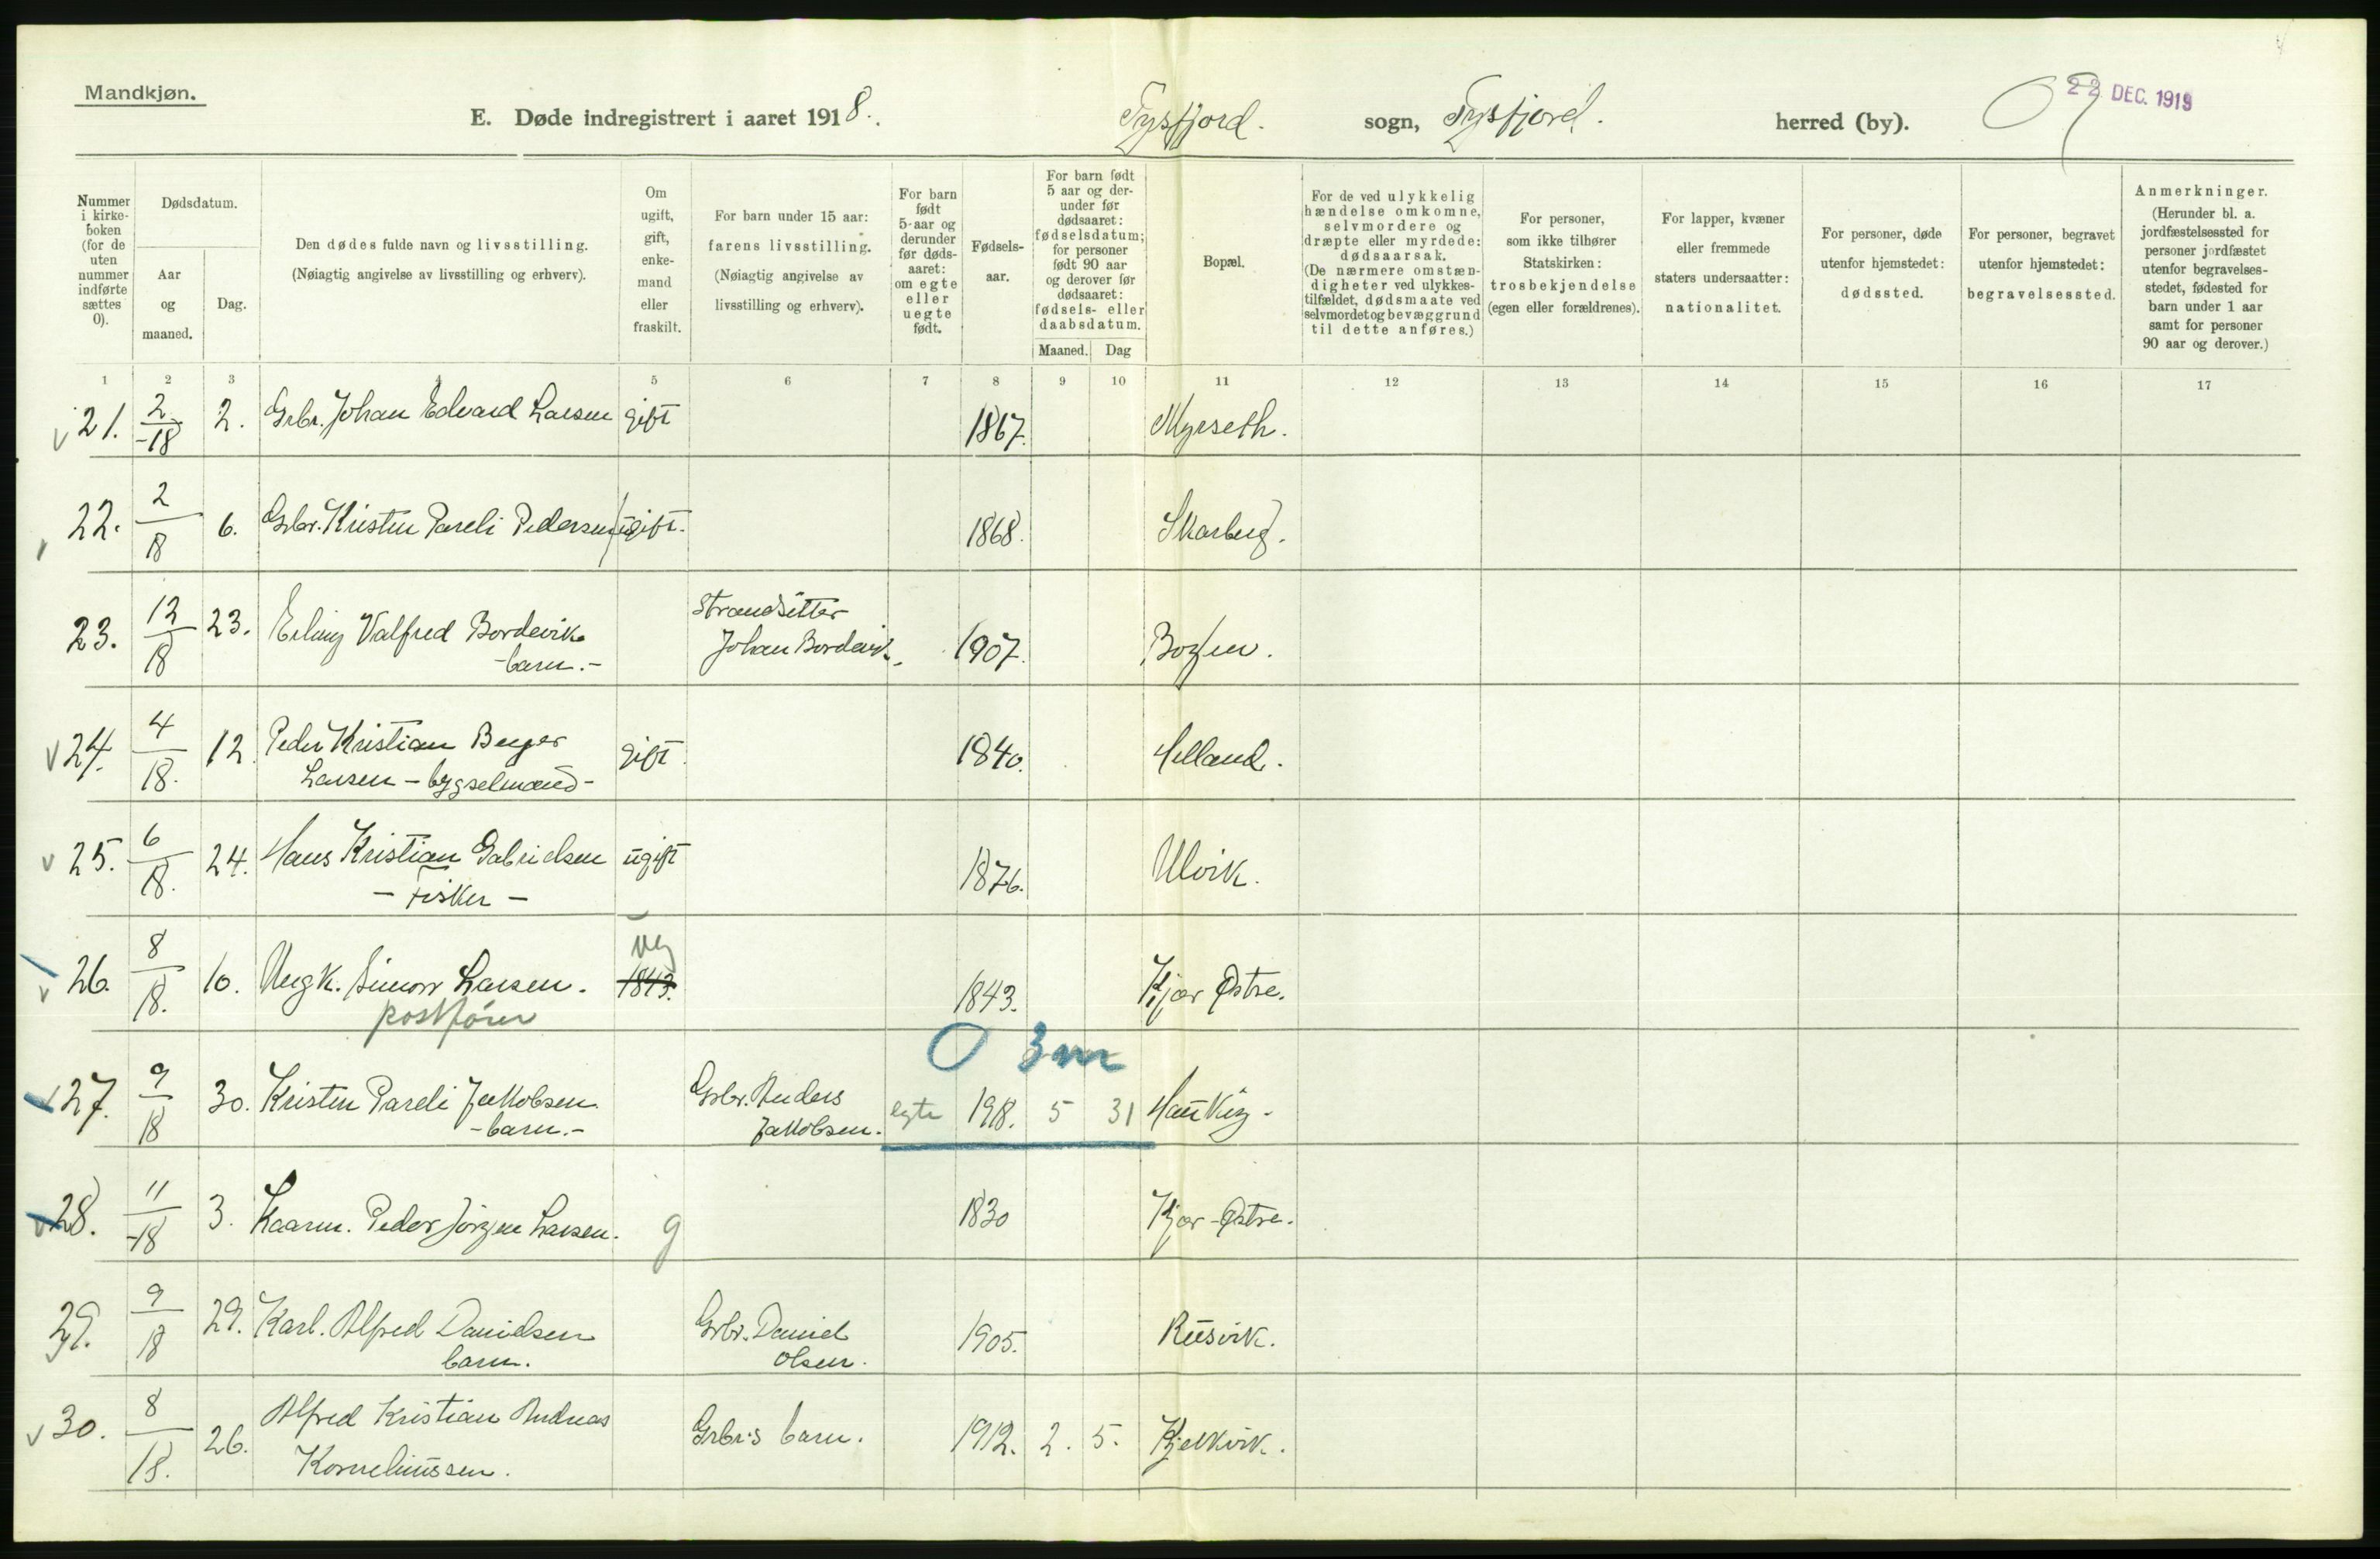 Mandkjøn.
E. Døde indregistrert i aaret 1918. Tysfjord. sogn, Tysfjord. herred (by).
22 DEC. 1919
Nummer i kirkeboken (for de uten nummer indførte sættes 0).
Dødsdatum.
Aar og maaned.
Dag.
Den dødes fulde navn og livsstilling.
(Nøiagtig angivelse av livsstilling og erhverv).
Om ugift, gift, enkemand eller fraskilt.
For barn under 15 aar: farens livsstilling.
(Nøiagtig angivelse av livsstilling og erhverv).
For barn født 5 aar og derunder før dødsaaret: om egte eller uegte født.
Fødselsaar.
For barn født 5 aar og derunder før dødsaaret: fødselsdatum; for personer født 90 aar og derover før dødsaaret: fødsels- eller daabsdatum.
Maaned. Dag
Bopæl.
For de ved ulykkelig hændelse omkomne, selvmordere og dræpte eller myrdede: dødsaarsak.
(De nærmere omstændigheter ved ulykkestilfældet, dødsmaate ved selvmordet og bevæggrund til dette anføres.)
For personer, som ikke tilhører Statskirken: trosbekjendelse (egen eller forældrenes).
For lapper, kvæner eller fremmede staters undersaatter: nationalitet.
For personer, døde utenfor hjemstedet: dødssted.
For personer, begravet utenfor hjemstedet: begravelsessted.
Anmerkninger.
(Herunder bl. a. jordfæstelsessted for personer jordfæstet utenfor begravelsesstedet, fødested for barn under 1 aar samt for personer 90 aar og derover.)
1 2 3 4 5 6 7 8 9 10 11 12 13 14 15 16 17
21. 2/-18 2. Grbr. Johan Edvard Larsen gift 1867. Myrseth.
22. 2/18 6. Grbr. Kristen Pareli Pedersen ugift. 1868. Skarberg.
23. 12/18 23. Erling Valfred Bordevik -barn.- Strandsitter Johan Bordevik. 1907. Bogen.
24. 4/18. 12. Peder Kristian Berger Larsen - bygselmand - gift. 1840. Helland.
25. 6/18. 24. Hans Kristian Gabrielsen - Fisker - ugift 1876. Ulvik.
26. 8/18. 10. Ungk. Simon Larsen. postfører 1843. ug 1843. Kjær Østre.
0 3m
27. 9/18 30. Kristen Pareli Jakobsen -barn.- Grbr. Anders Jakobsen. egte 1918. 5 31 Haukøy -
28. 11/-18 3. Kaarm. Peder Jørgen Larsen. g 1830 Kjær - Østre.
29. 9/18 29. Karl. Alfred Danielsen barn. Grbr. Daniel Olsen. 1905. Rusvik.
30. 8/18. 26. Alfred Kristian Andreas Korneliussen. Grbr.s barn. 1912. 2. 5. Kjelkvik.